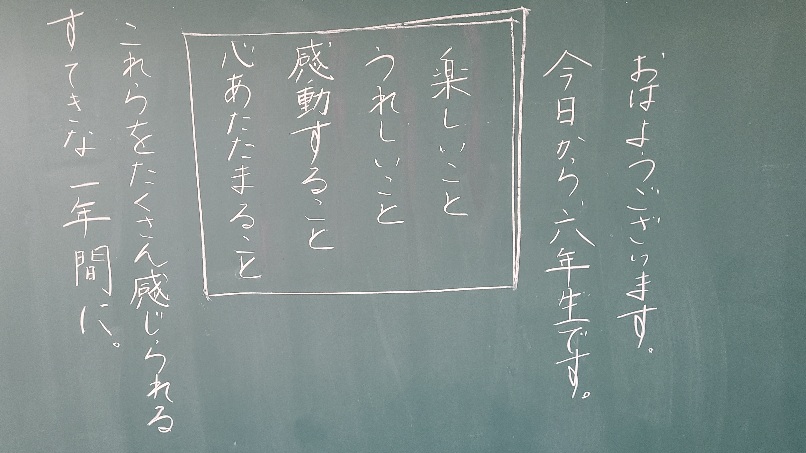 おはようございます。
今日から、六年生です。
楽しいこと
うれしいこと
感動すること
心あたたまること
これらをたくさん感じられる
すてきな一年間に。